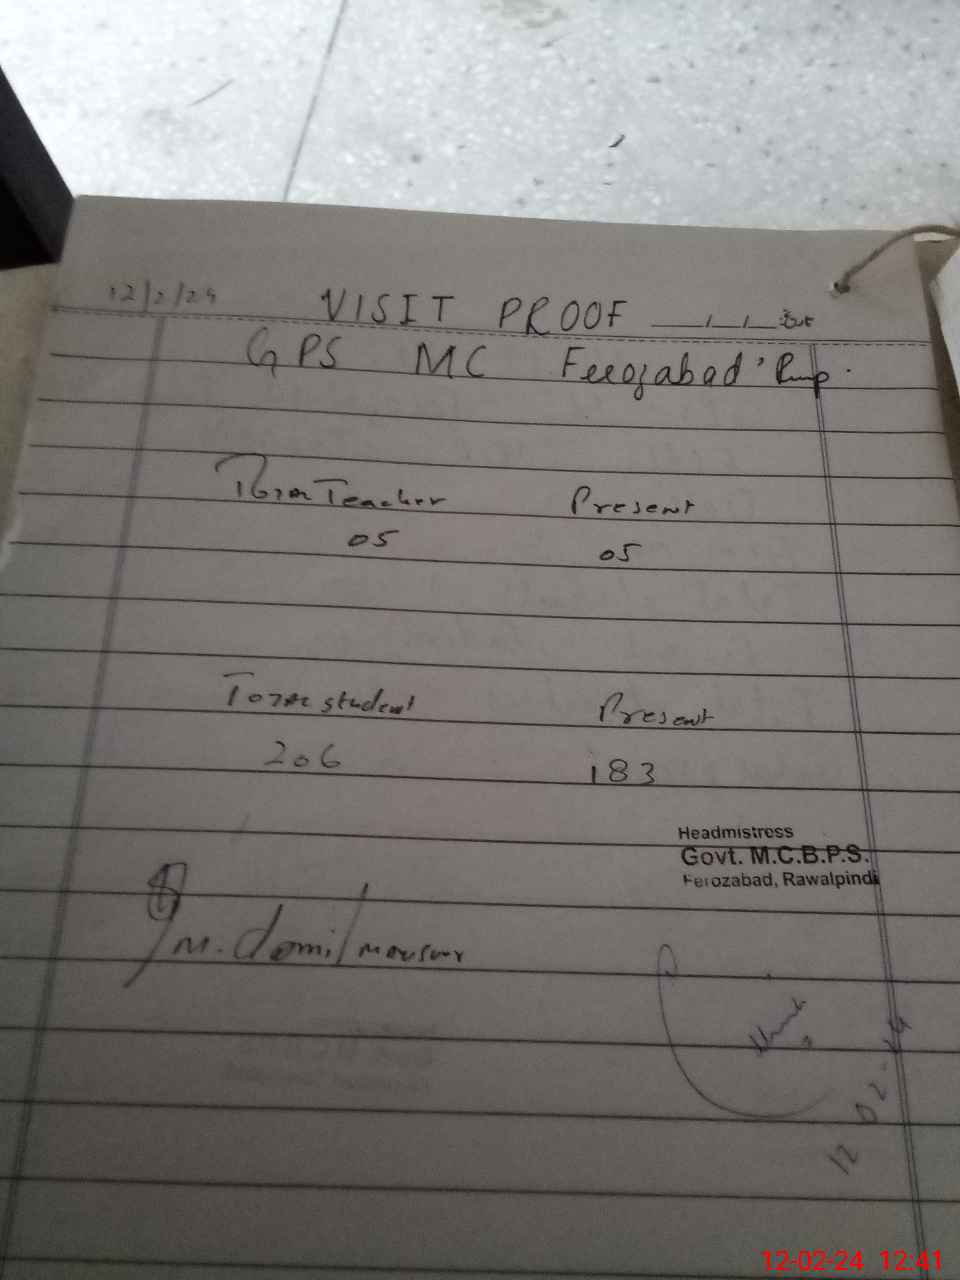 12/2/24 VISIT PROOF
GPS MC Ferozabad, Rwp.
Total Teacher Present
05 05
Total student Present
206 183
Headmistress
Govt. M.C.B.P.S.
Ferozabad, Rawalpindi
M.
12-02-24
12-02-24 12:41